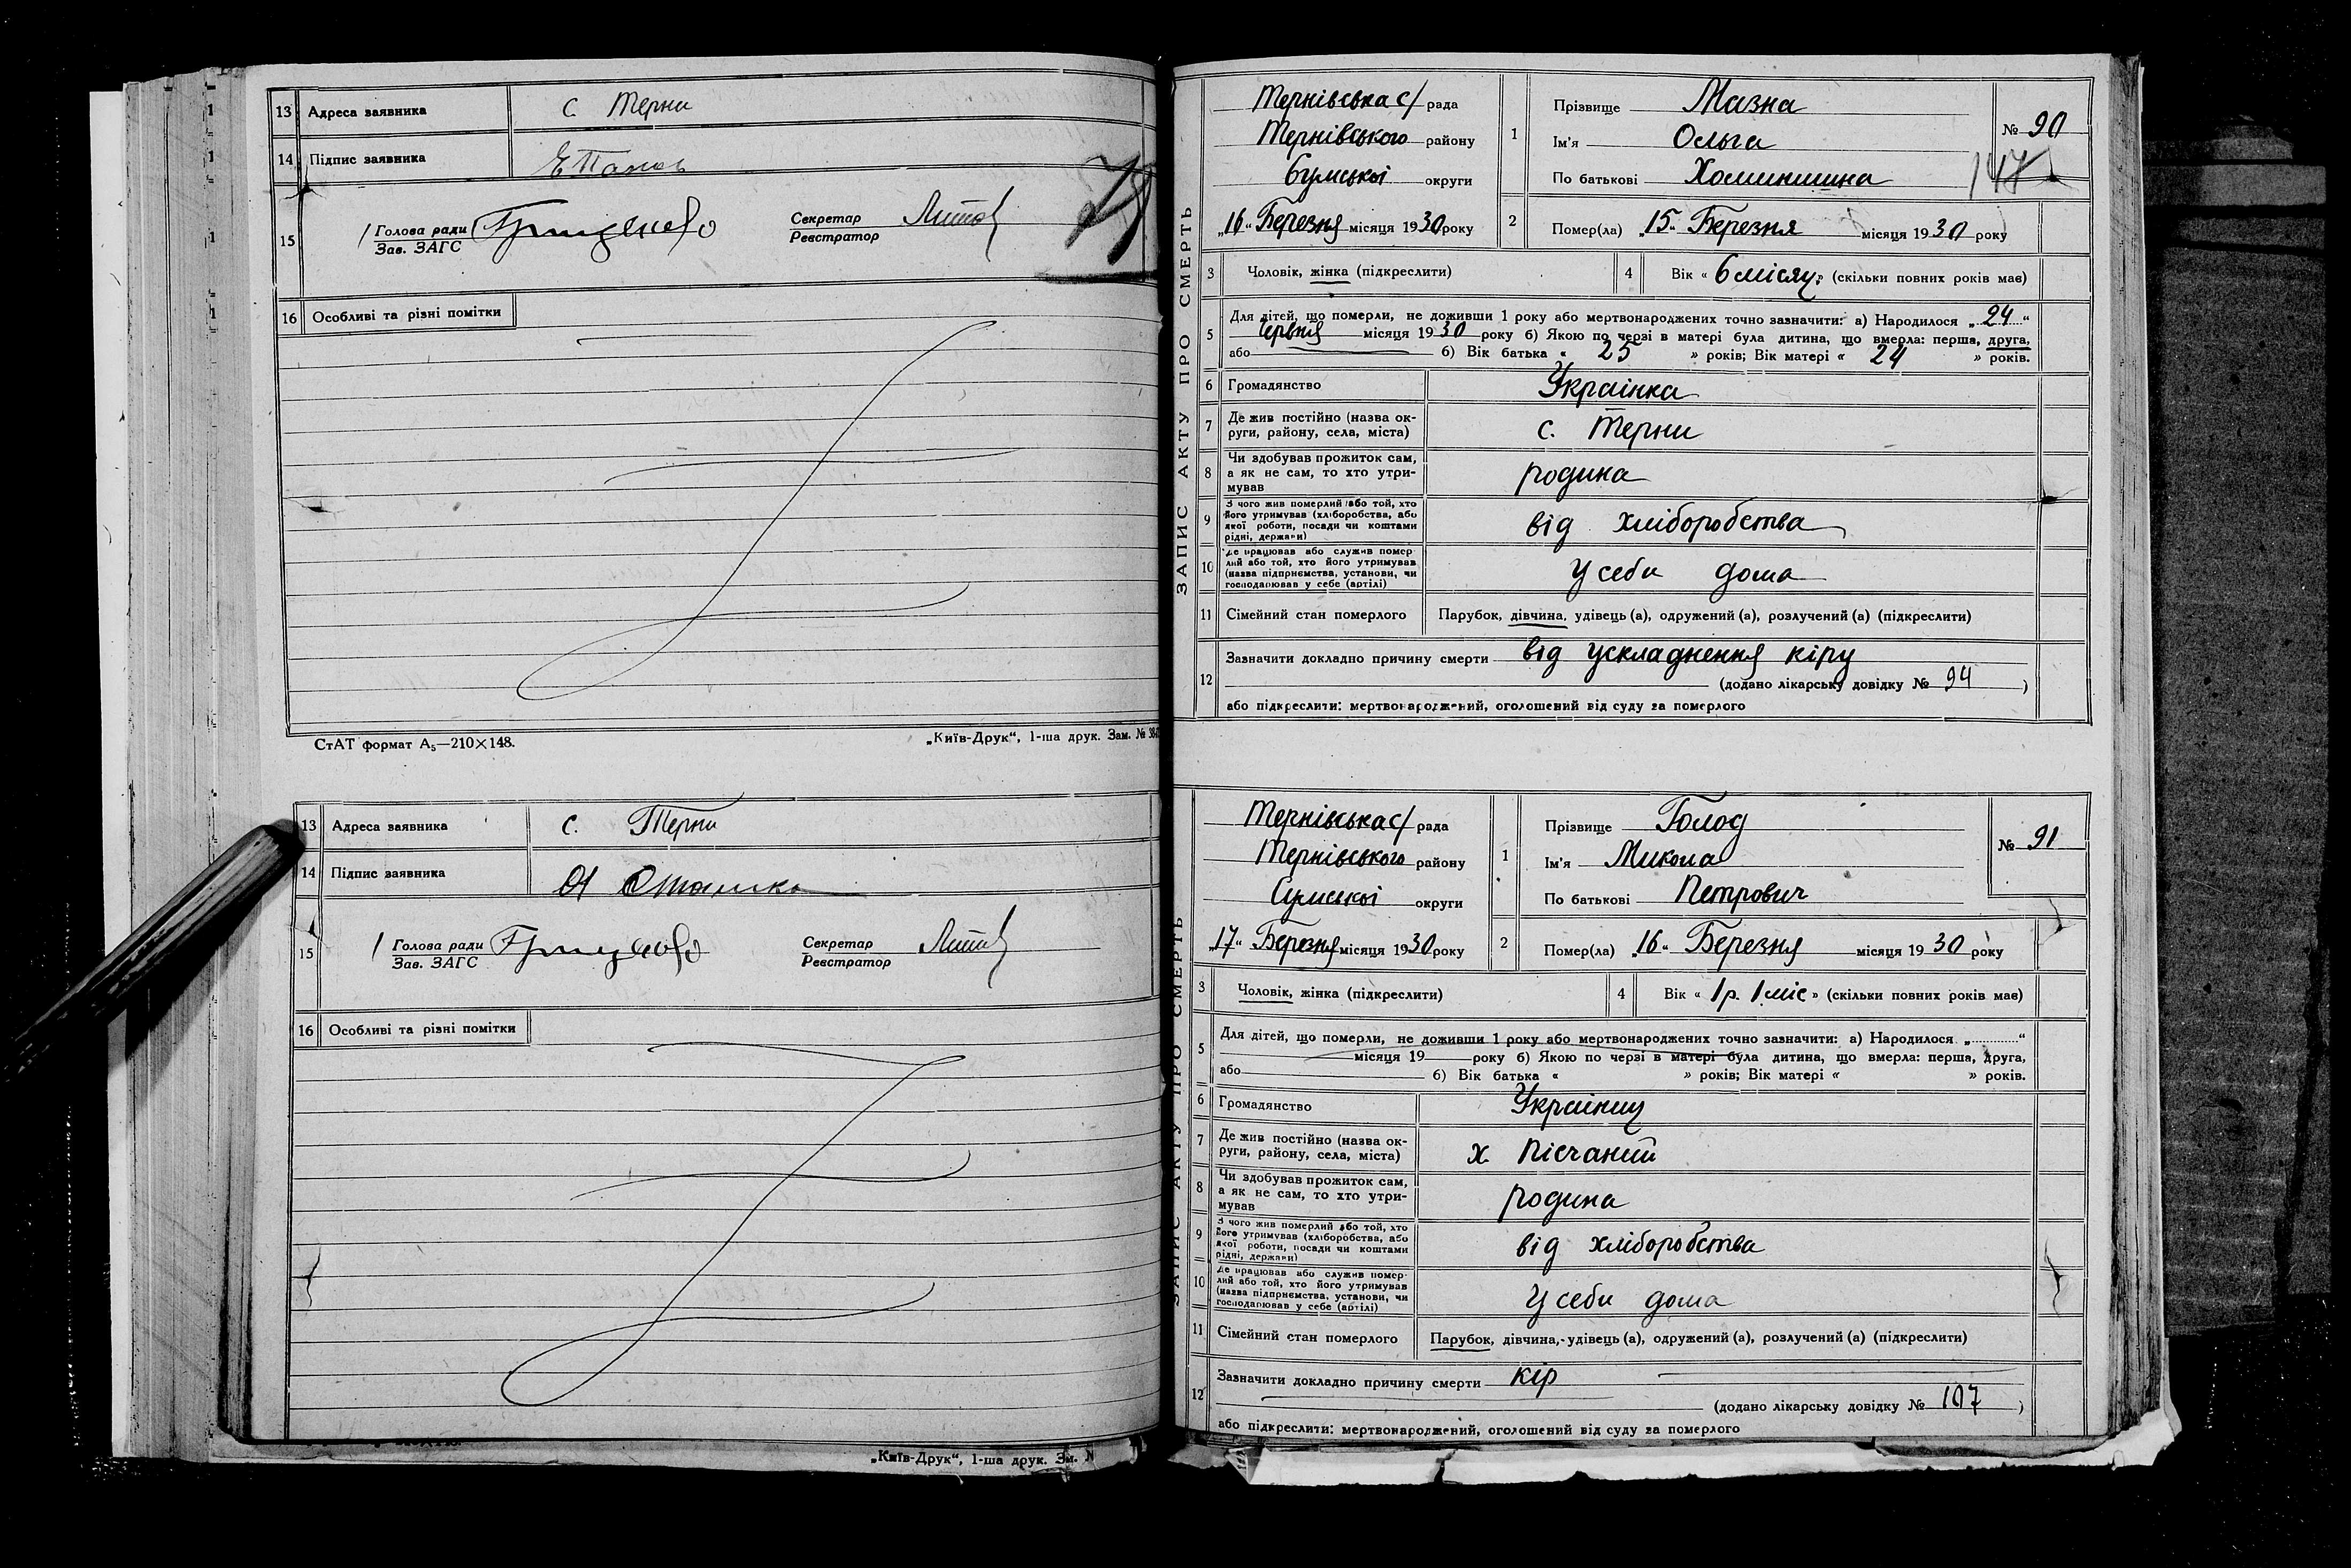 13 Адреса заявника с. Терни
14 Підпис заявника
15 Голова ради Секретар
Зав. ЗАГС Реєстратор
16 Особливі та різні помітки
СтАТ формат А₅—210×148. „Київ-Друк“, 1-ша друк. Зам. №
13 Адреса заявника с. Терни
14 Підпис заявника
15 Голова ради Секретар
Зав. ЗАГС Реєстратор
16 Особливі та різні помітки
„Київ-Друк“, 1-ша друк. Зам. №
ЗАПИС АКТУ ПРО СМЕРТЬ
Тернівська с/ рада
Тернівського району
Сумської округи
„16“ Березня місяця 1930 року
1 Прізвище Мазна
Ім'я Ольга
По батькові
№ 90
2 Помер(ла) „15“ Березня місяця 1930 року
3 Чоловік, жінка (підкреслити)
4 Вік « 6 місяц. » (скільки повних років має)
5 Для дітей, що померли, не доживши 1 року або мертвонароджених точно зазначити: а) Народилося „24“
Червня місяця 1930 року б) Якою по черзі в матері була дитина, що вмерла: перша, друга,
або б) Вік батька « 25 » років; Вік матері « 24 » років.
6 Громадянство Українка
7 Де жив постійно (назва ок-
руги, району, села, міста) с. Терни
8 Чи здобував прожиток сам,
а як не сам, то хто утри-
мував родина
9 З чого жив померлий або той, хто
його утримував (хліборобства, або
якої роботи, посади чи коштами
рідні, держави) від хліборобства
10 Де працював або служив помер-
лий або той, хто його утримував
(назва підприємства, установи, чи
господарював у себе (артілі) у себи дома
11 Сімейний стан померлого Парубок, дівчина, удівець (а), одружений (а), розлучений (а) (підкреслити)
12 Зазначити докладно причину смерти від ускладнення кіру
(додано лікарську довідку № 94 )
або підкреслити: мертвонароджений, оголошений від суду за померлого
ЗАПИС АКТУ ПРО СМЕРТЬ
Тернівська с/ рада
Тернівського району
Сумської округи
„17“ Березня місяця 1930 року
1 Прізвище Голод
Ім'я Микола
По батькові Петрович
№ 91
2 Помер(ла) „16“ Березня місяця 1930 року
3 Чоловік, жінка (підкреслити)
4 Вік « 1 р. 1 міс » (скільки повних років має)
5 Для дітей, що померли, не доживши 1 року або мертвонароджених точно зазначити: а) Народилося „ “
місяця 19 року б) Якою по черзі в матері була дитина, що вмерла: перша, друга,
або б) Вік батька « » років; Вік матері « » років.
6 Громадянство Українец
7 Де жив постійно (назва ок-
руги, району, села, міста) х Пісчаний
8 Чи здобував прожиток сам,
а як не сам, то хто утри-
мував родина
9 З чого жив померлий або той, хто
його утримував (хліборобства, або
якої роботи, посади чи коштами
рідні, держави) від хліборобства
10 Де працював або служив помер-
лий або той, хто його утримував
(назва підприємства, установи, чи
господарював у себе (артілі) у себи дома
11 Сімейний стан померлого Парубок, дівчина, удівець (а), одружений (а), розлучений (а) (підкреслити)
12 Зазначити докладно причину смерти кір
(додано лікарську довідку № 107 )
або підкреслити: мертвонароджений, оголошений від суду за померлого